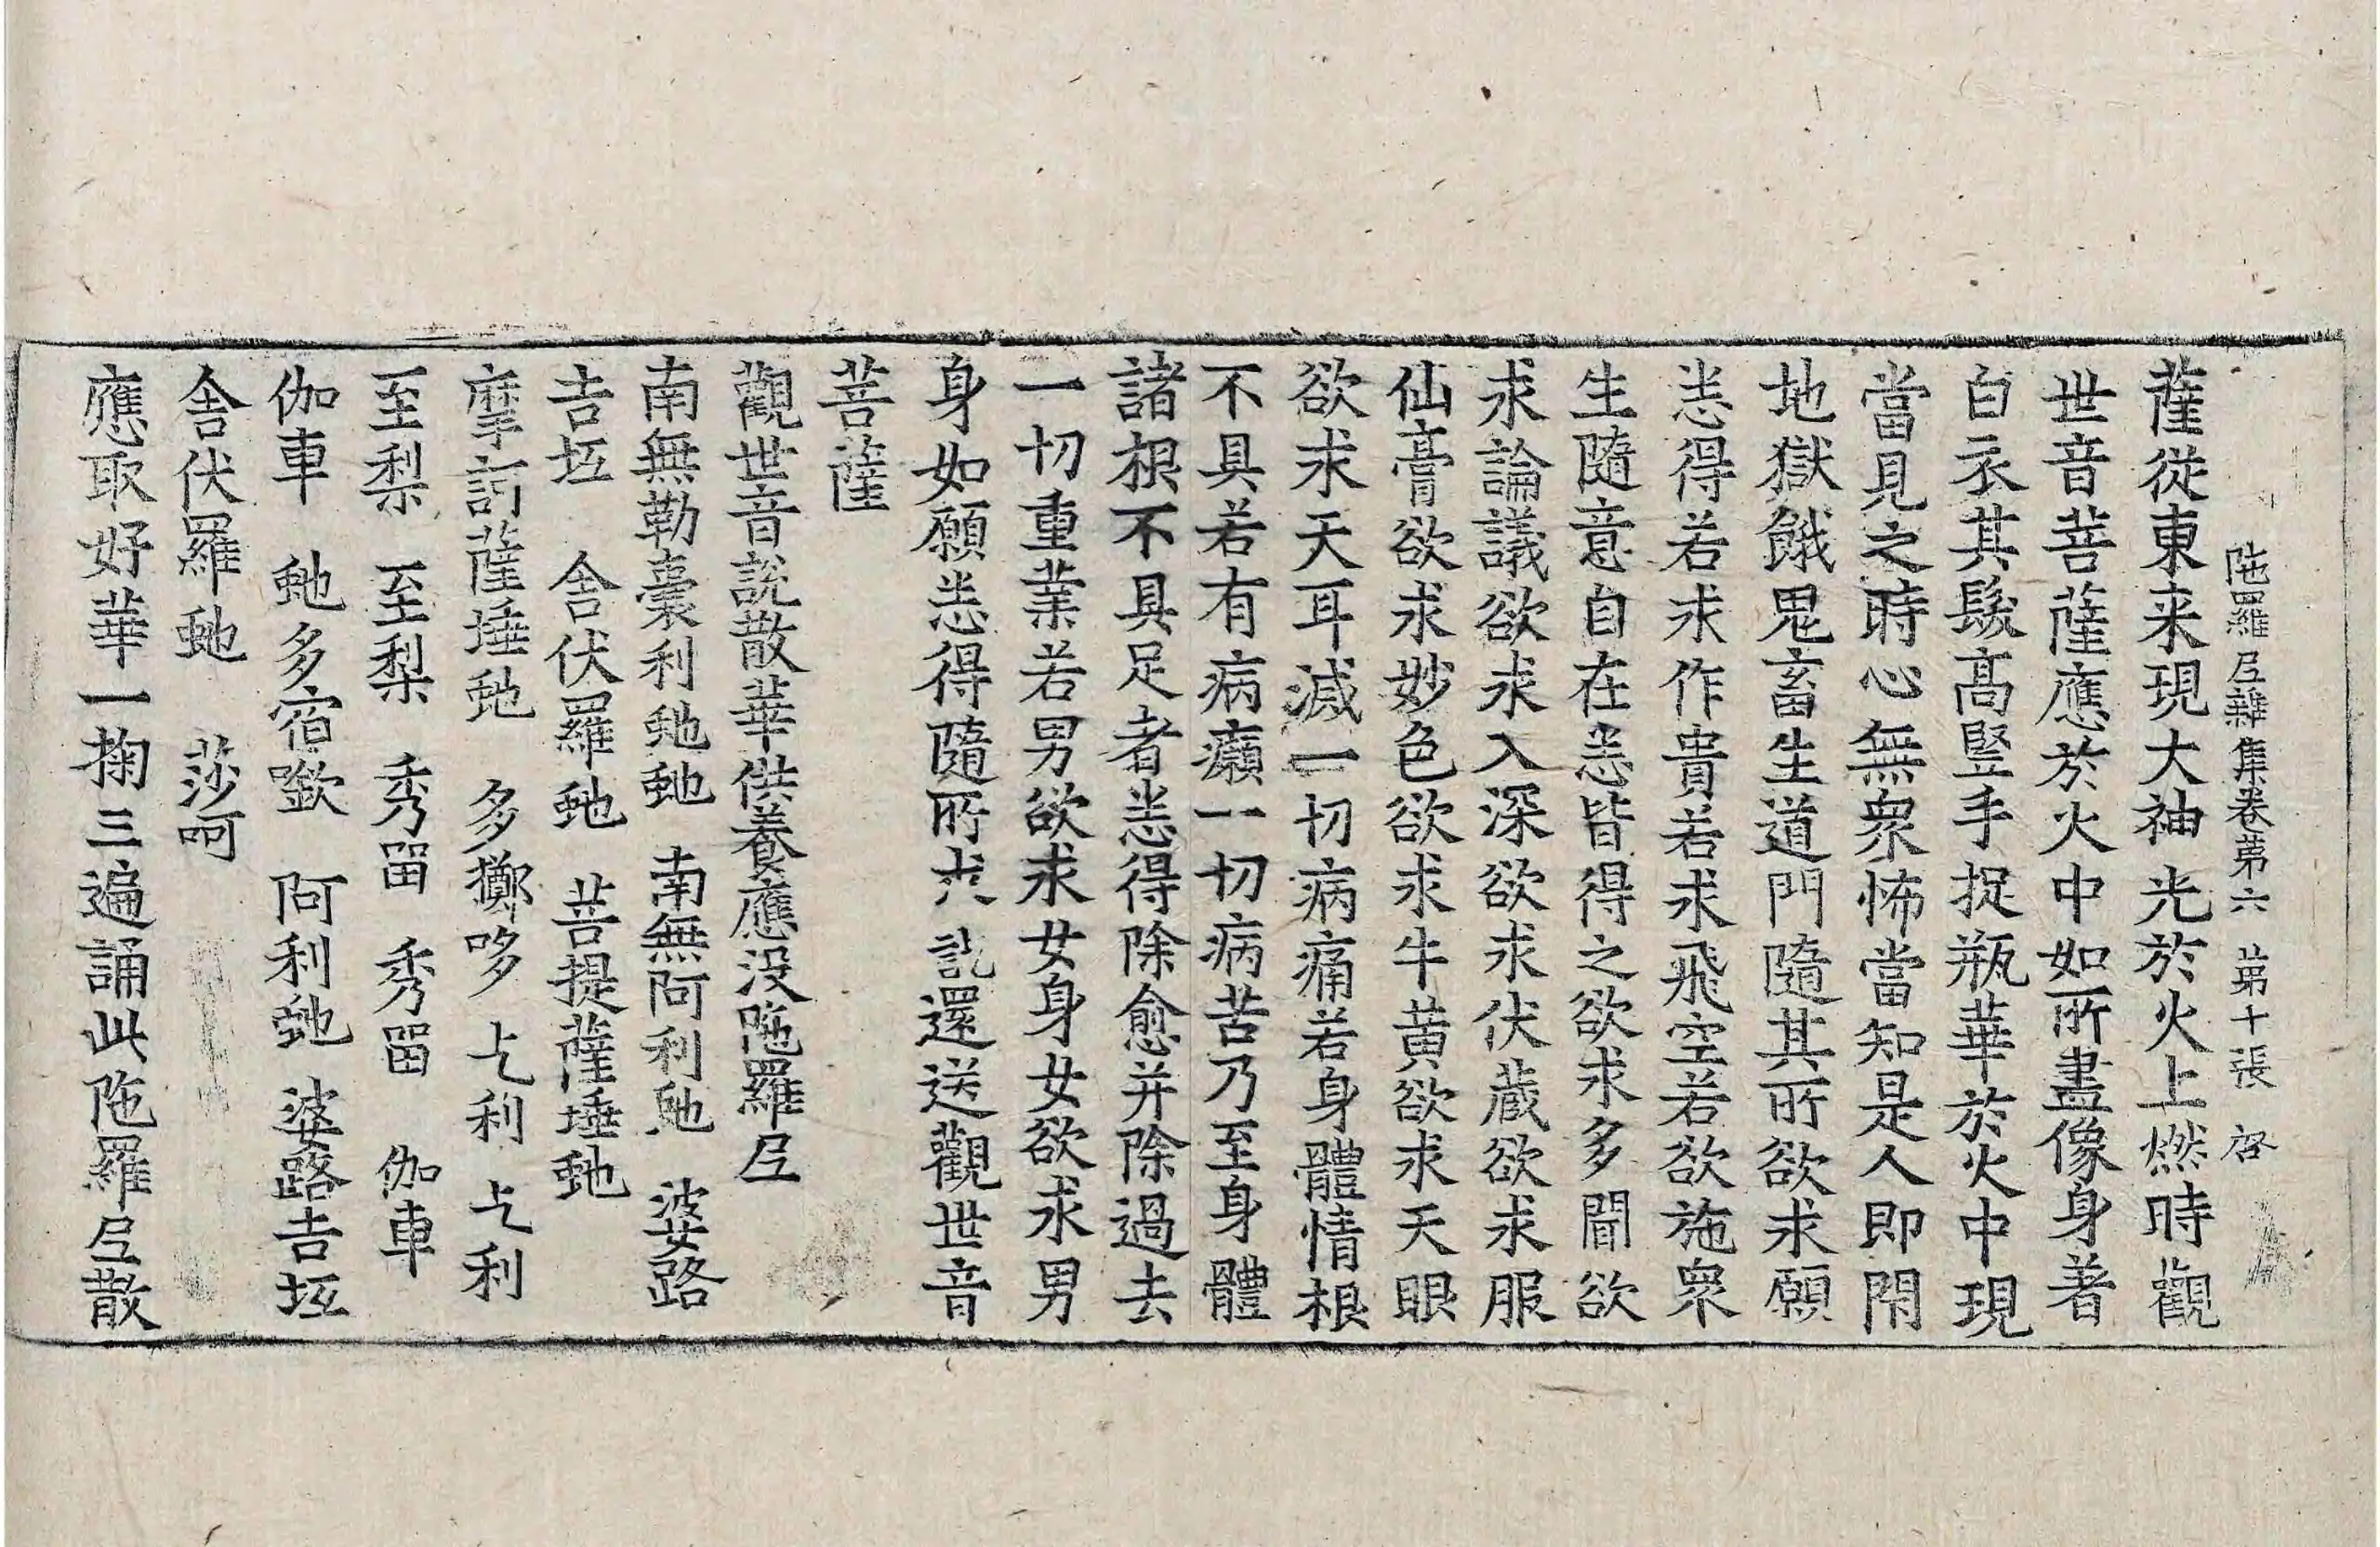 陁羅𡰱雜集卷第六 第十張 啓
薩從東来現大神光於火上燃時觀
世音菩薩應於火中如所畫像身著
白衣其髮髙竪手捉瓶華於火中現
當見之時心無衆怖當知是人即閇
地獄餓鬼畜生道門隨其所欲求願
悉得若求作貴若求飛空若欲施衆
生隨意自在悉皆得之欲求多聞欲
求論議欲求入深欲求伏蔵欲求服
仙膏欲求妙色欲求牛黄欲求天眼
欲求天耳滅一切病痛若身體情根
不具若有病癩一切病苦乃至身體
諸根不具足者悉得除愈并除過去
一切重業若男欲求女身女欲求男
身如願悉得隨所求訖還送觀世音
菩薩
觀世音說散華供養應没陁羅𡰱
南無勒囊利虵虵 南無阿利虵 婆路
吉坘 舎伏羅虵 菩提薩埵虵
摩訶薩埵虵 多擲哆 上利 上利
至梨 至梨 秀留 秀留 伽車
伽車 虵多宿㘕 阿利虵 婆路吉坘
舎伏羅虵 莎呵
應取好華一掬三遍誦此陁羅𡰱散